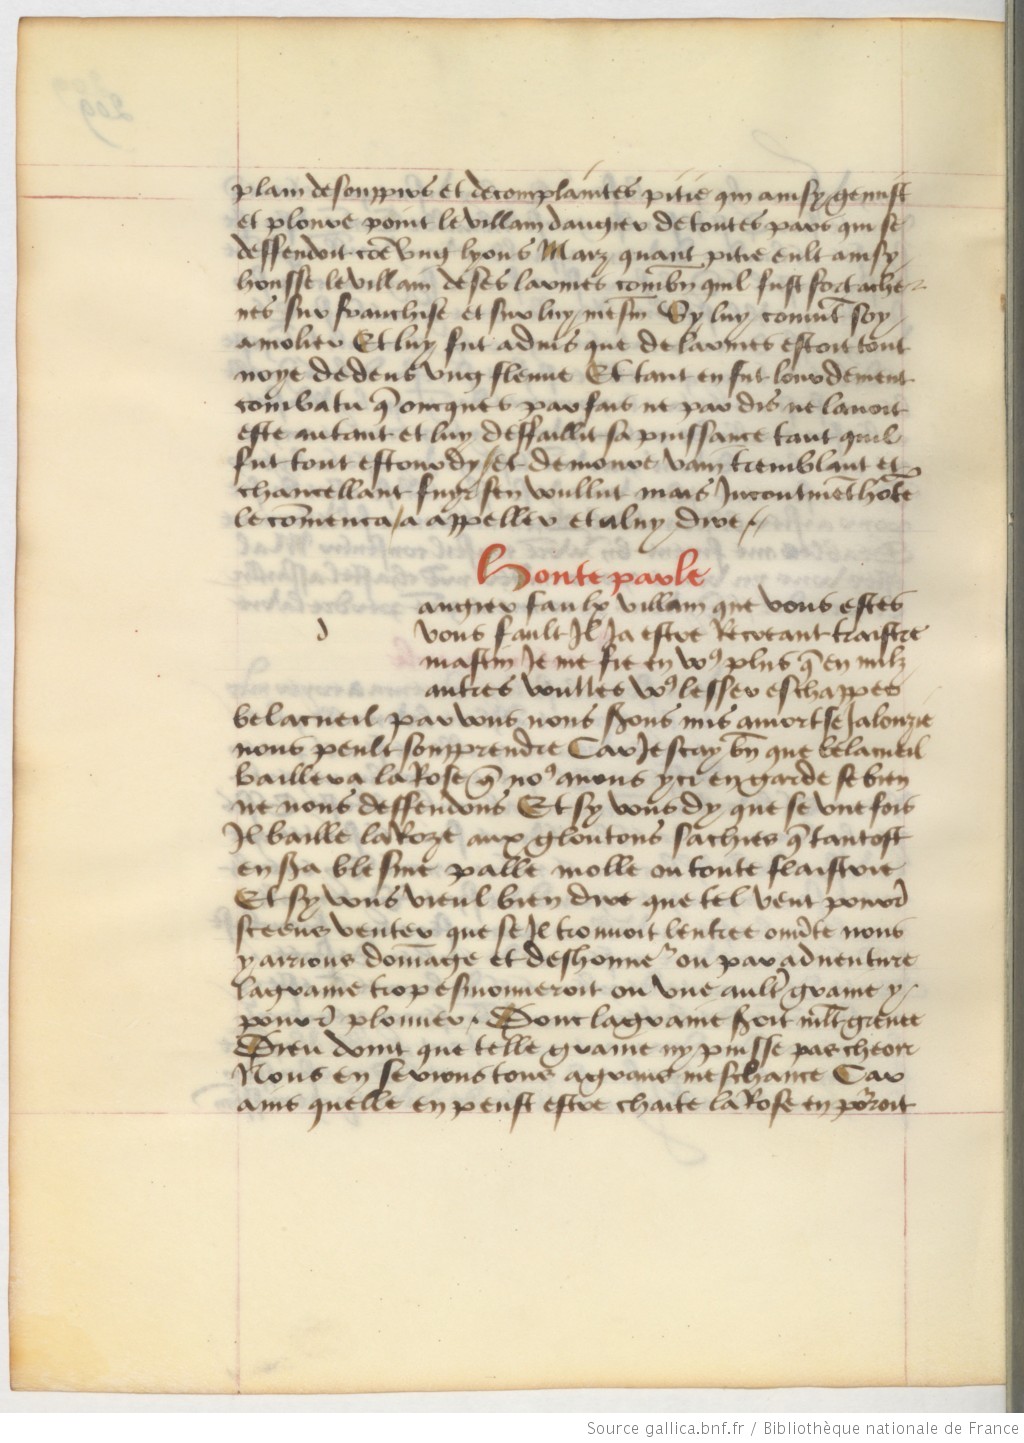 plain de souppirs et de complaintes pitie qui ainsy gemist
et ploure point le villain dangier de toutes pars qui se
deffendoit cõe ung lyons Marz quant pitie eult ainsy
housse le villain de ses larmes combñ quil fust fort ache
nes sur franchise et sur luy mesm̃ Sy luy conuĩt soy
amolier Et luy fut aduis que de larmes estoit tout
noye dedens ung fleuue Et tant en fut lourdement
combatu q̃ oncques par fais ne par dis ne lauoit
este autant et luy deffaillit sa puissance tant quil
fut tout estourdy / et demoure vain tremblant et
chancellant fuyr sen voullut mais Incontinẽt hõte
le cõmenca / a appeller et a luy dire /.
Honte parle
d
angier faulx villain que vous estes
vous fault Il Ja estre Recreant traistre
mastin Je me fie en vo⁹ plus q̃ en nulz
autres voulles vo⁹ lesser eschappes
belacueil par vous nous sons mis a mort se Jalouzie
nous peult somprendre Car Je scay bñ que belacueil
baillera la Rose q̃ no⁹ auons ycy en garde se bien
ne nous deffendons Et sy vous dy que se une fois
Il baille la Roze aux gloutons sachies q̃ tantost
en sa blesme palle molle ou toute flaistrie
Et sy vous vieul bien dire que tel vent pourr̃
sceens venter que se Il trouuoit lentree ouũte nous
y arrions dom̃age et deshonne² ou par aduenture
la graine trop esmouueroit ou une ault² graine y
pourr̃ plouuer . Dont la graine soit ml̃t greuee
Dieu doint que telle graine ny puisse pas cheoir
Nous en serions tous a grant meschance Car
ains quelle en peust estre chaite la Rose en porroit